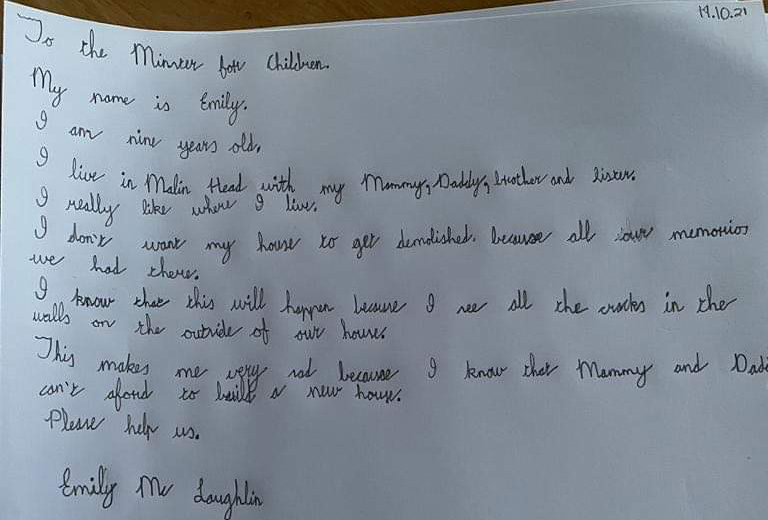 19.10.21
To the Minster for Children.
My name is Emily.
I am nine years old.
I live in Malin Head with my Mommy, Daddy, brother and sister.
I really like where I live.
I don't want my house to get demolished. because all our memorios
we had there.
I know that this will happen because I see all the cracks in the
walls on the outside of our house.
This makes me very sad because I know that Mammy and Dad
can't aford to built a new house.
Please help us.
Emily Mc Laughlin